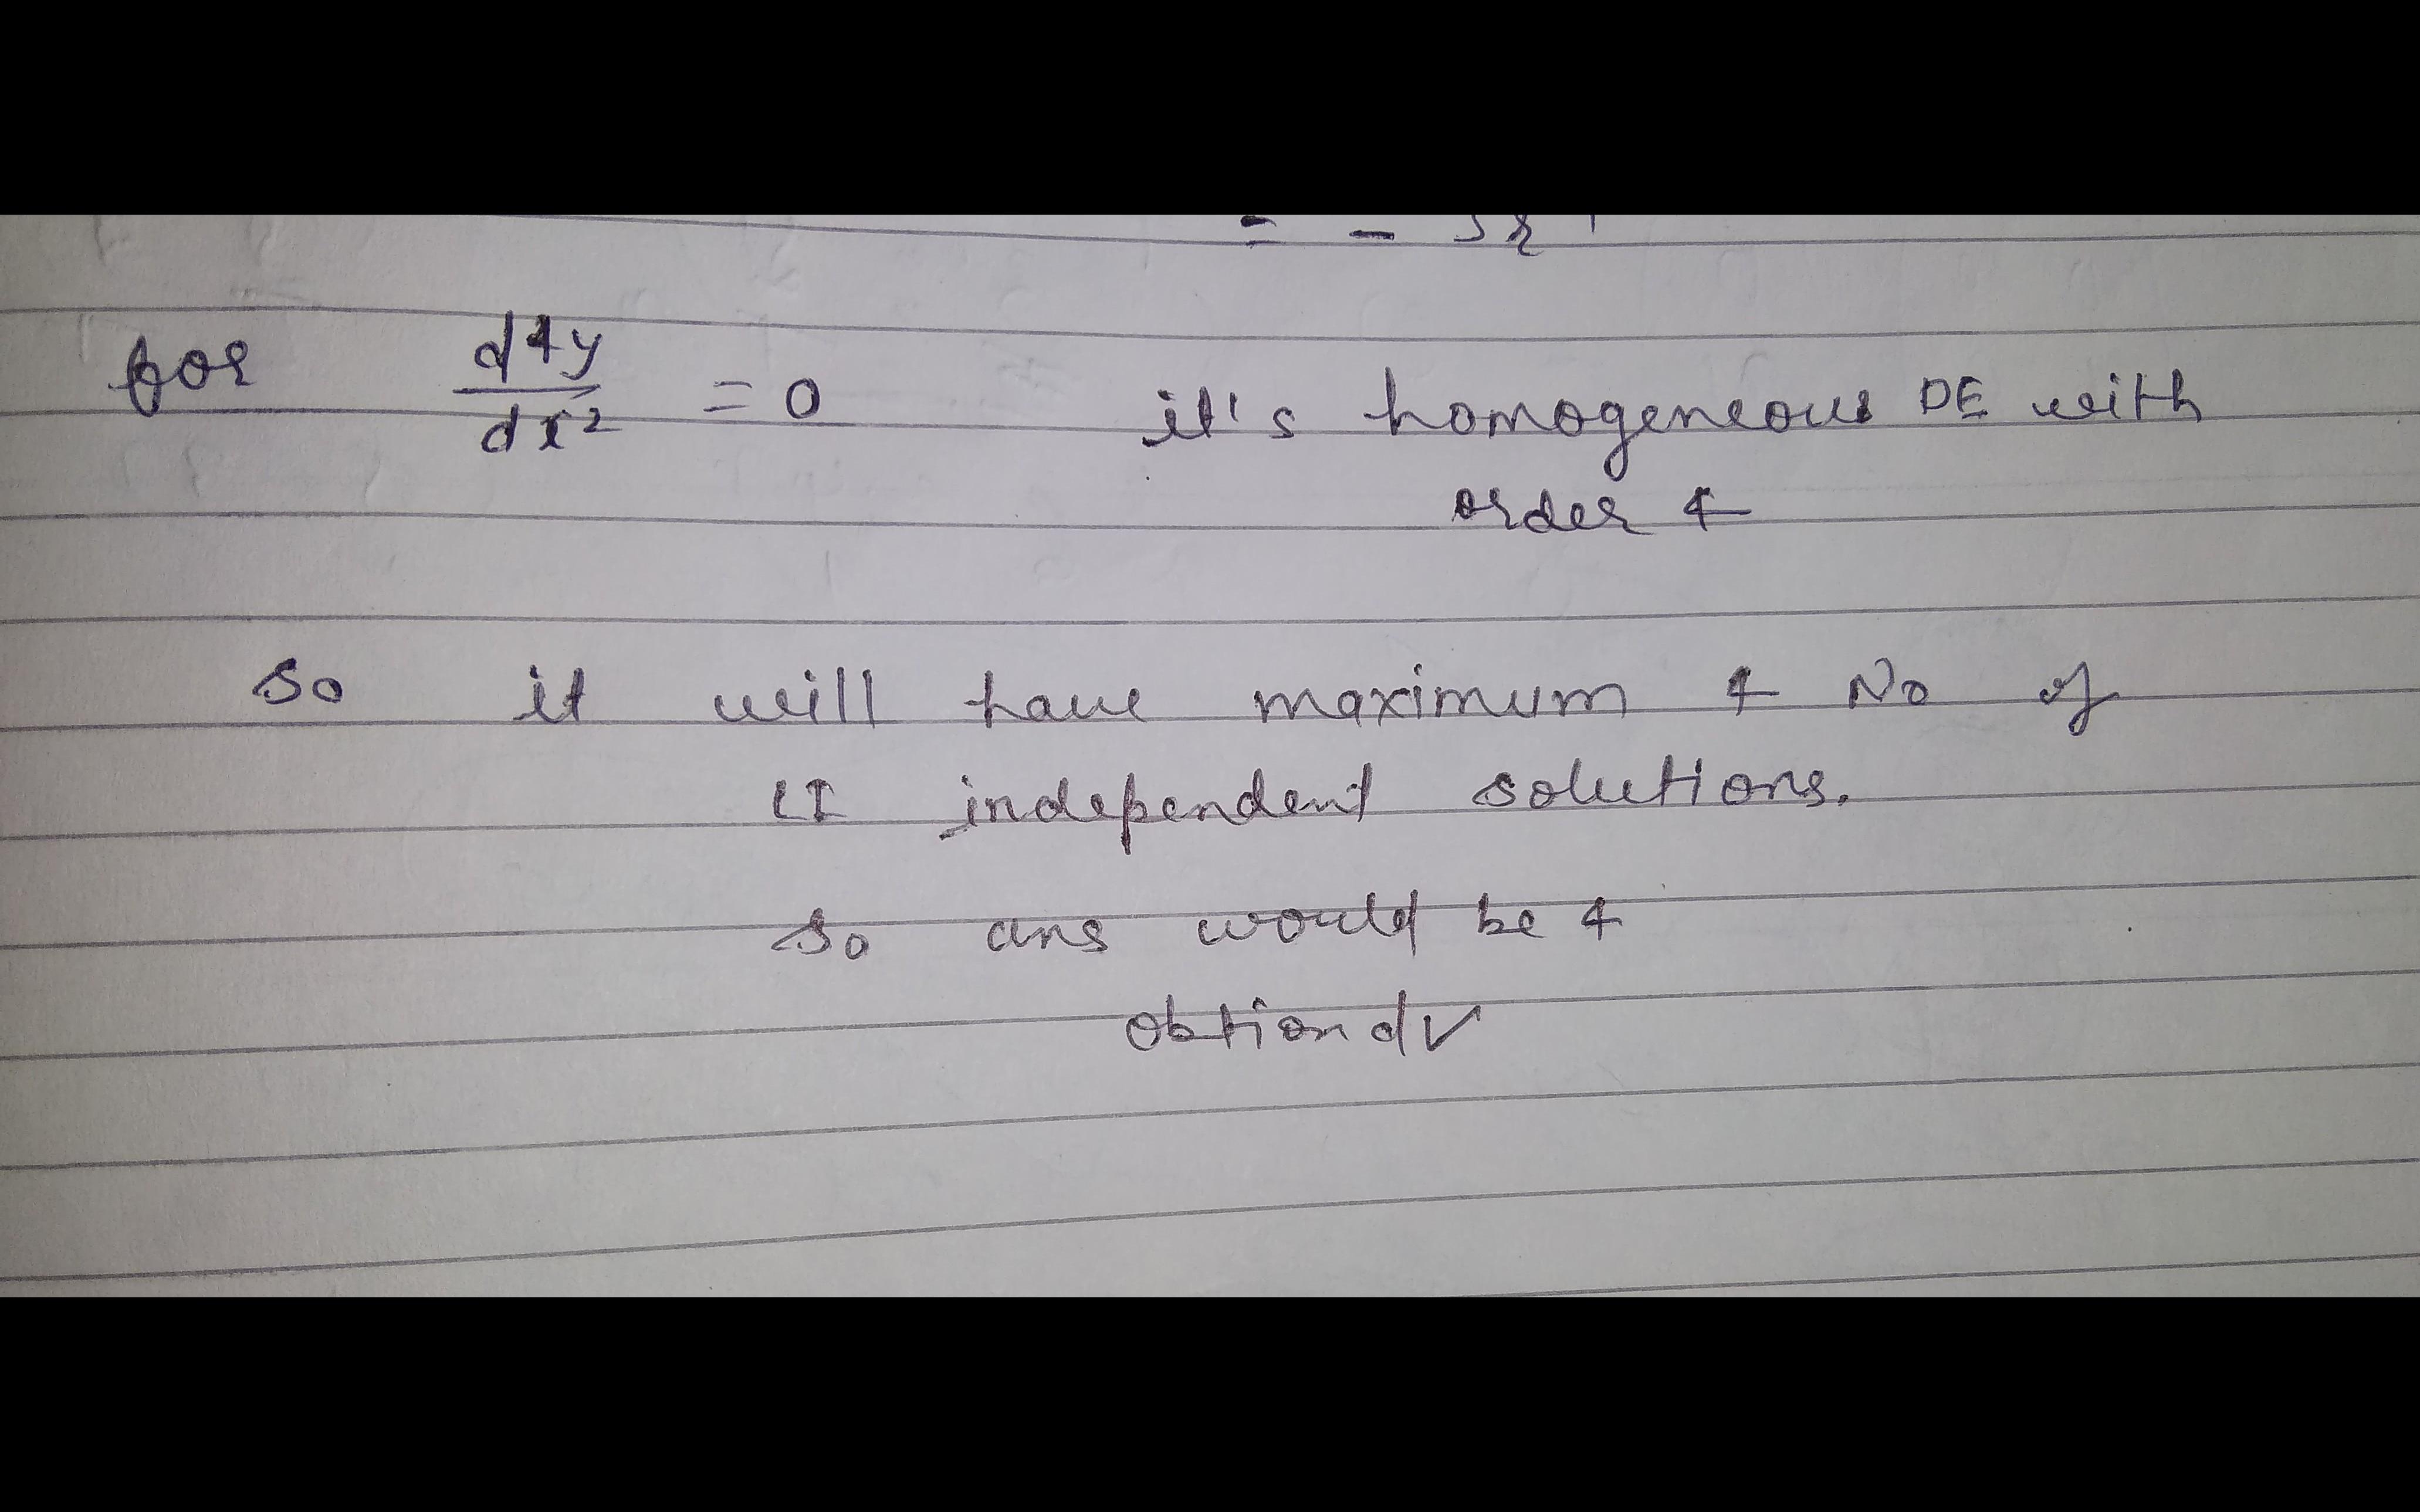 for d⁴y/dx² = 0 it's homogeneous DE with
order 4
so it will have maximum 4 No of
LI independent solutions.
so ans would be 4
obtion d ✓